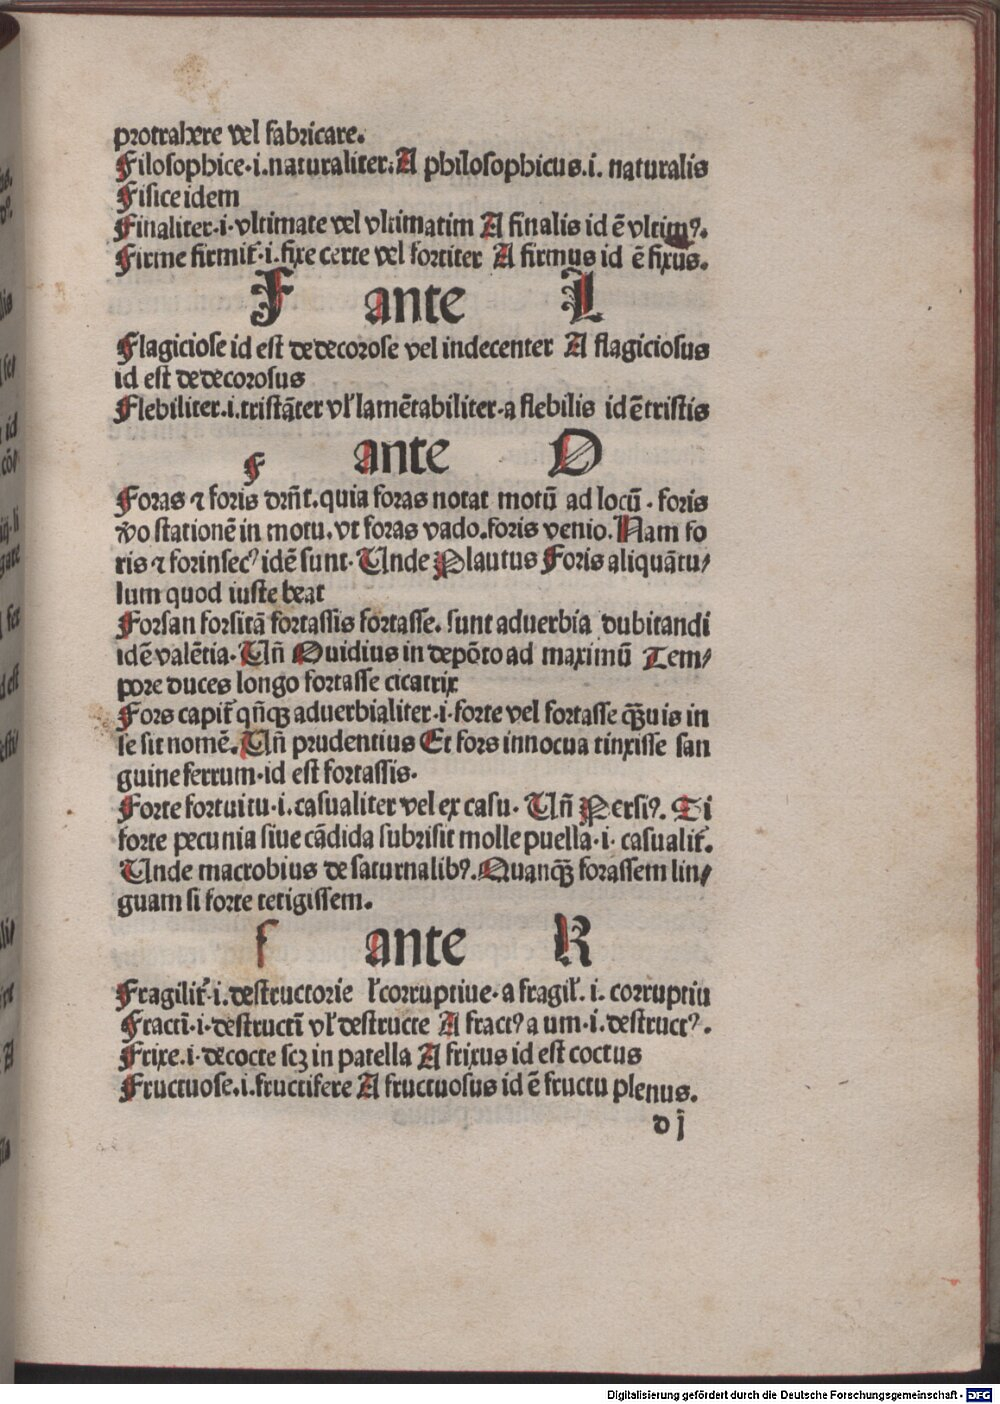 protrahere vel fabricare.
Filosophice·i.naturaliter. A philosophicus.i. naturalis
Fisice idem
Finaliter·i·vltimate vel vltimatim A finalis id ē vltimꝰ.
Firme firmit᷑·i.fixe certe vel fortiter A firmus id ē fixus.
F ante L
Flagiciose id est dedecorose vel indecenter A flagiciosus
id est dedecorosus
Flebiliter.i.tristāter vl᷑ lamētabiliter·a flebilis id ē tristis
F ante O
Foras ⁊ foris drn̄t.quia foras notat motū ad locū·foris
vo stationē in motu.vt foras vado.foris venio.Nam fo
ris ⁊ forinsecꝰ idē sunt·Unde Plautus Foris aliquātu/
lum quod iuste beat
Forsan forsitā fortassis fortasse. sunt aduerbia dubitandi
idē valētia·Un̄ Ouidius in depōto ad maximū Tem/
pore duces longo fortasse cicatrix
Fors capit᷑ qn̄qꝫ aduerbialiter·i·forte vel fortasse qꝫuis in
se sit nomē.Un̄ prudentius Et fors innocua tinxisse san
guine ferrum·id est fortassis·
Forte fortuitu·i.casualiter vel ex casu· Un̄ Persiꝰ. Si
forte pecunia siue cādida subrisit molle puella·i· casualit᷑.
Unde macrobius de saturnalibꝰ.Quanqꝫ forassem lin/
guam si forte tetigissem.
f ante R
Fragilit᷑·i.destructorie l᷑ corruptiue·a fragil᷑. i. corruptiu
Fractī·i·destructī vl᷑ destructe A fractꝰ a um·i.destructꝰ.
Frixe.i·decocte scꝫ in patella A frixus id est coctus
Fructuose.i.fructifere A fructuosus id ē fructu plenus.
d j
Digitalisierung gefördert durch die Deutsche Forschungsgemeinschaft - DFG